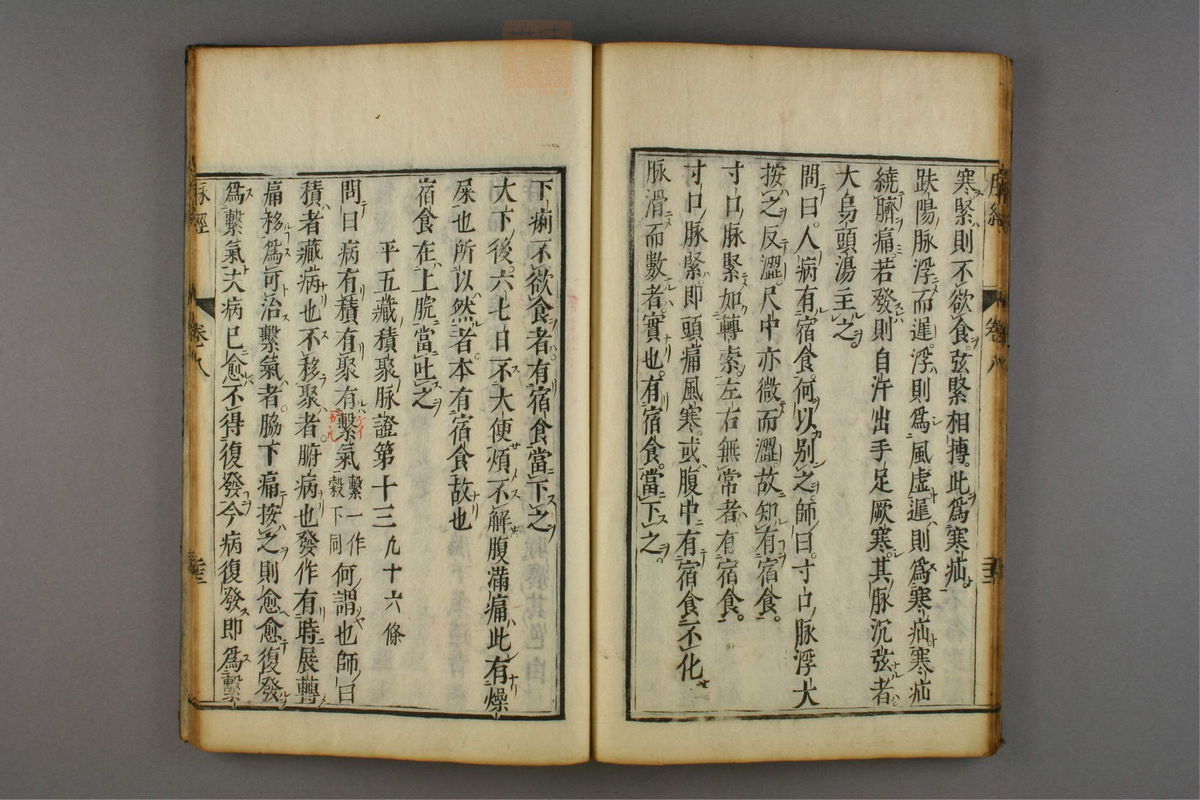 寒緊則不欲食弦緊相摶此爲寒疝
趺陽脉浮而遲浮則爲風虛遲則爲寒疝寒疝
繞臍痛若發則自汗出手足厥寒其脉沉弦者
大烏頭湯主之
問曰人病有宿食何以别之師曰寸口脉浮大
按之反澀尺中亦微而澀故知有宿食
寸口脉緊如轉索左右無常者有宿食
寸口脉緊即頭痛風寒或腹中有宿食不化
脉滑而數者實也有宿食當下之
下痢不欲食者有宿食當下之
大下後六七日不大便煩不解腹滿痛此有燥
屎也所以然者本有宿食故也
宿食在上脘當吐之
平五藏積聚脉證第十三九十六條
問曰病有積有聚有繫氣繫一作穀下同何謂也師曰
積者藏病也不移聚者腑病也發作有時展轉
痛移爲可治繫氣者脇下痛按之則愈愈復發
爲繫氣夫病已愈不得復發今病復發即爲繫
脉經
卷八